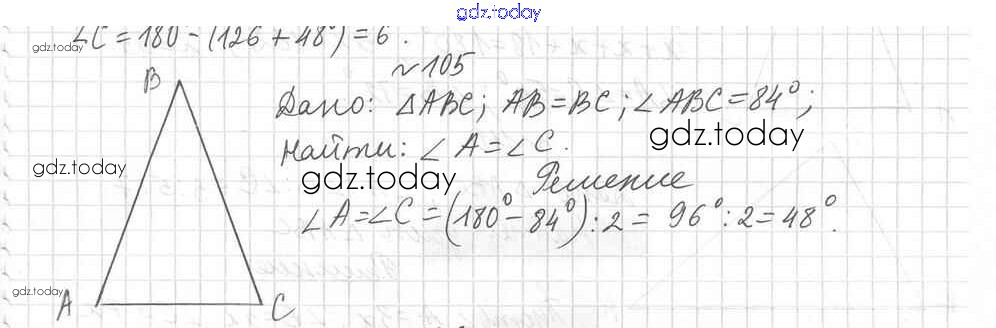 gdz.today
∠C = 180 - (126 + 48°) = 6°.
gdz.today
№105
B
Дано: △ABC; AB=BC; ∠ABC=84°;
gdz.today
Найти: ∠A=∠C.
gdz.today
gdz.today
Решение
∠A=∠C=(180°-84°):2= 96°:2=48°.
gdz.today
A
C